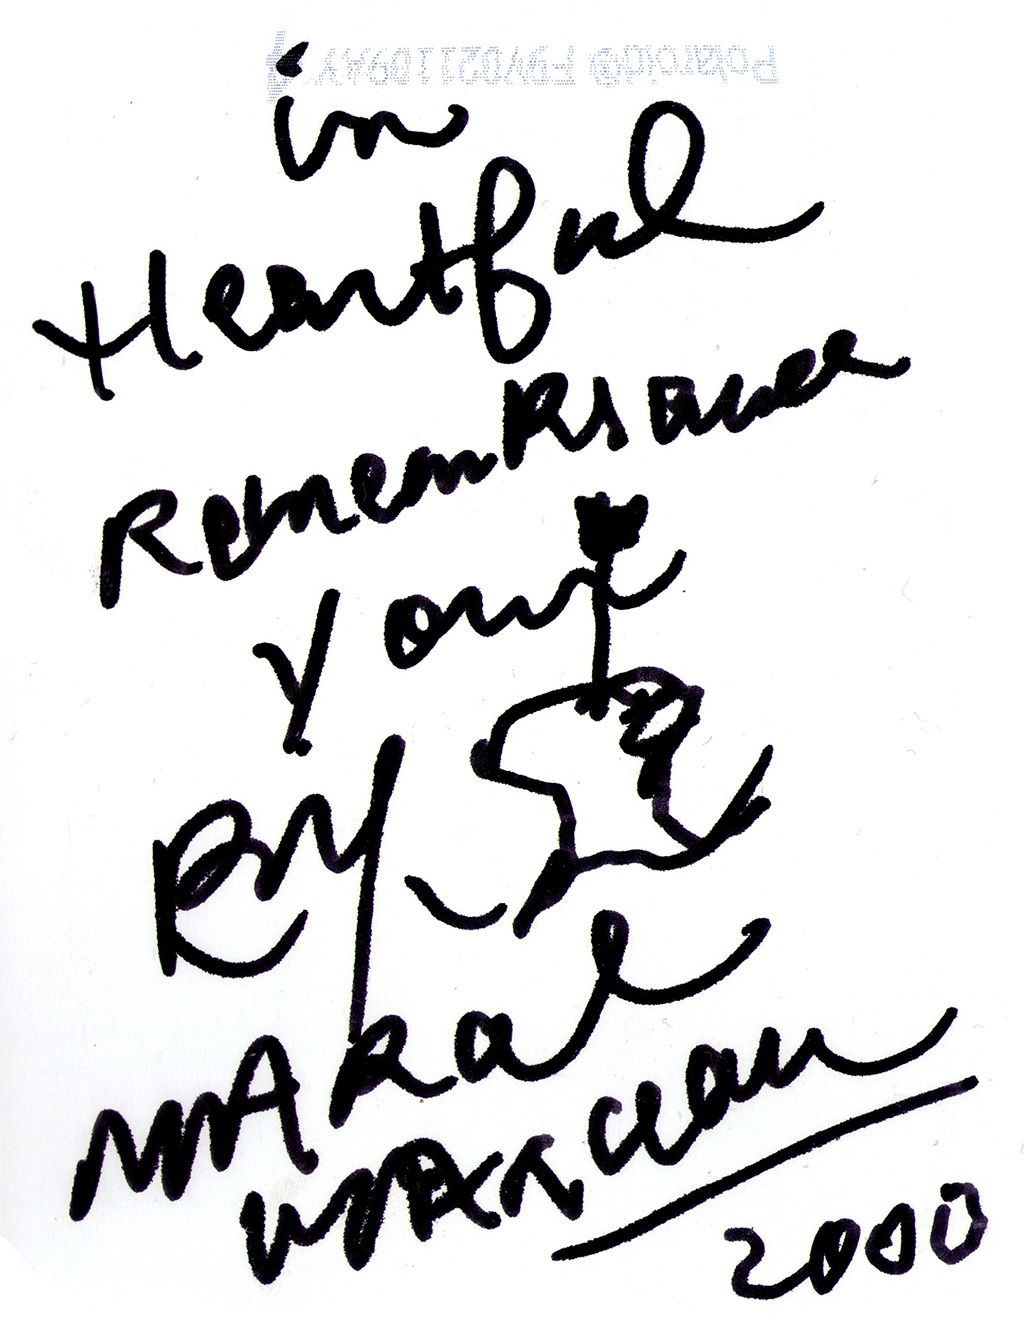 Polaroid®
in
Heartful
Remembrance
your
Bip
MARcel
MARceau
2000